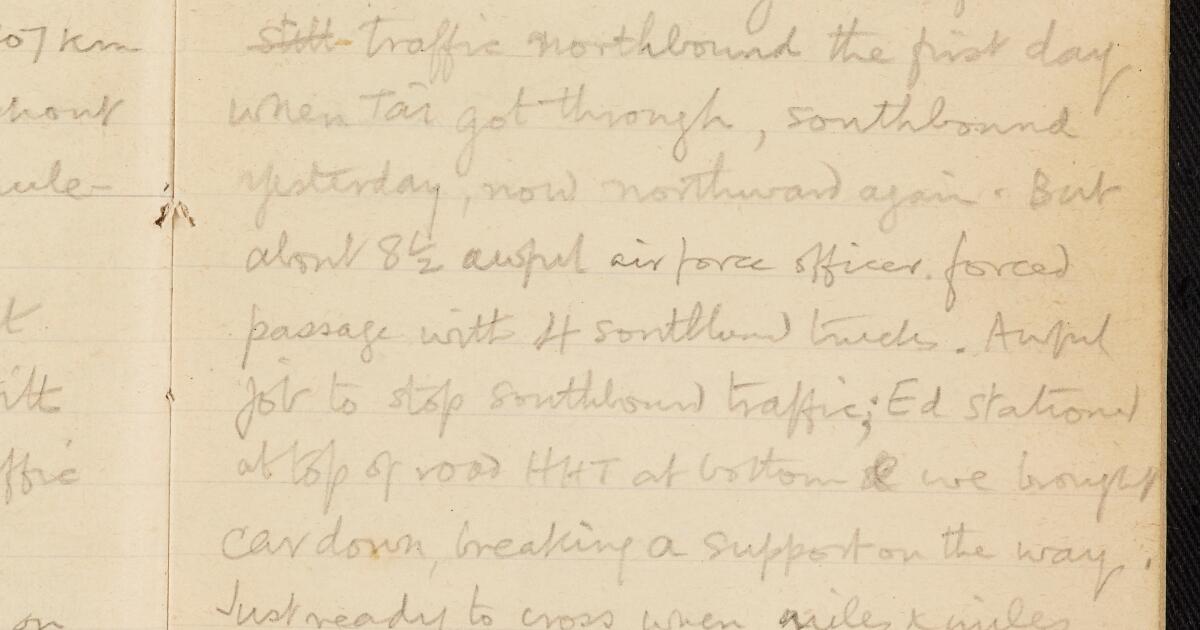 07 km
hout
ule-
t
ith
ffic
on
still traffic northbound the first day
when Tai got through, southbound
yesterday, now northward again. But
about 8½ awful airforce officer forced
passage with 4 southbound trucks. Awful
job to stop southbound traffic; Ed stationed
at top of road HHT at bottom & we brought
car down, breaking a support on the way.
Just ready to cross when miles & miles